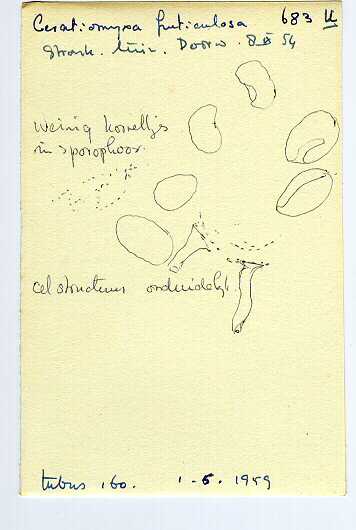 Ceratiomyxa fruticulosa 683 U
Strask. Doorw. 8 XI 54
Weinig korreltjes
in sporophoor.
celstructuur onduidelijk.
tubus 160. 1-6. 1959